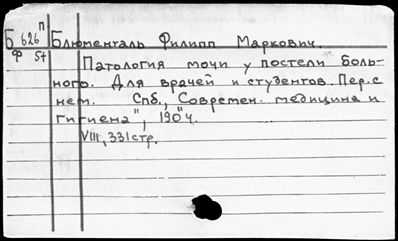 Б 626 П
Ф 57
Блюменталь Филипп Маркович.
Патология мочи у постели боль-
ного. Для врачей и студентов. Пер. с
нем. Спб., "Современ. медицина и
гигиена", 1904.
VIII, 331 стр.